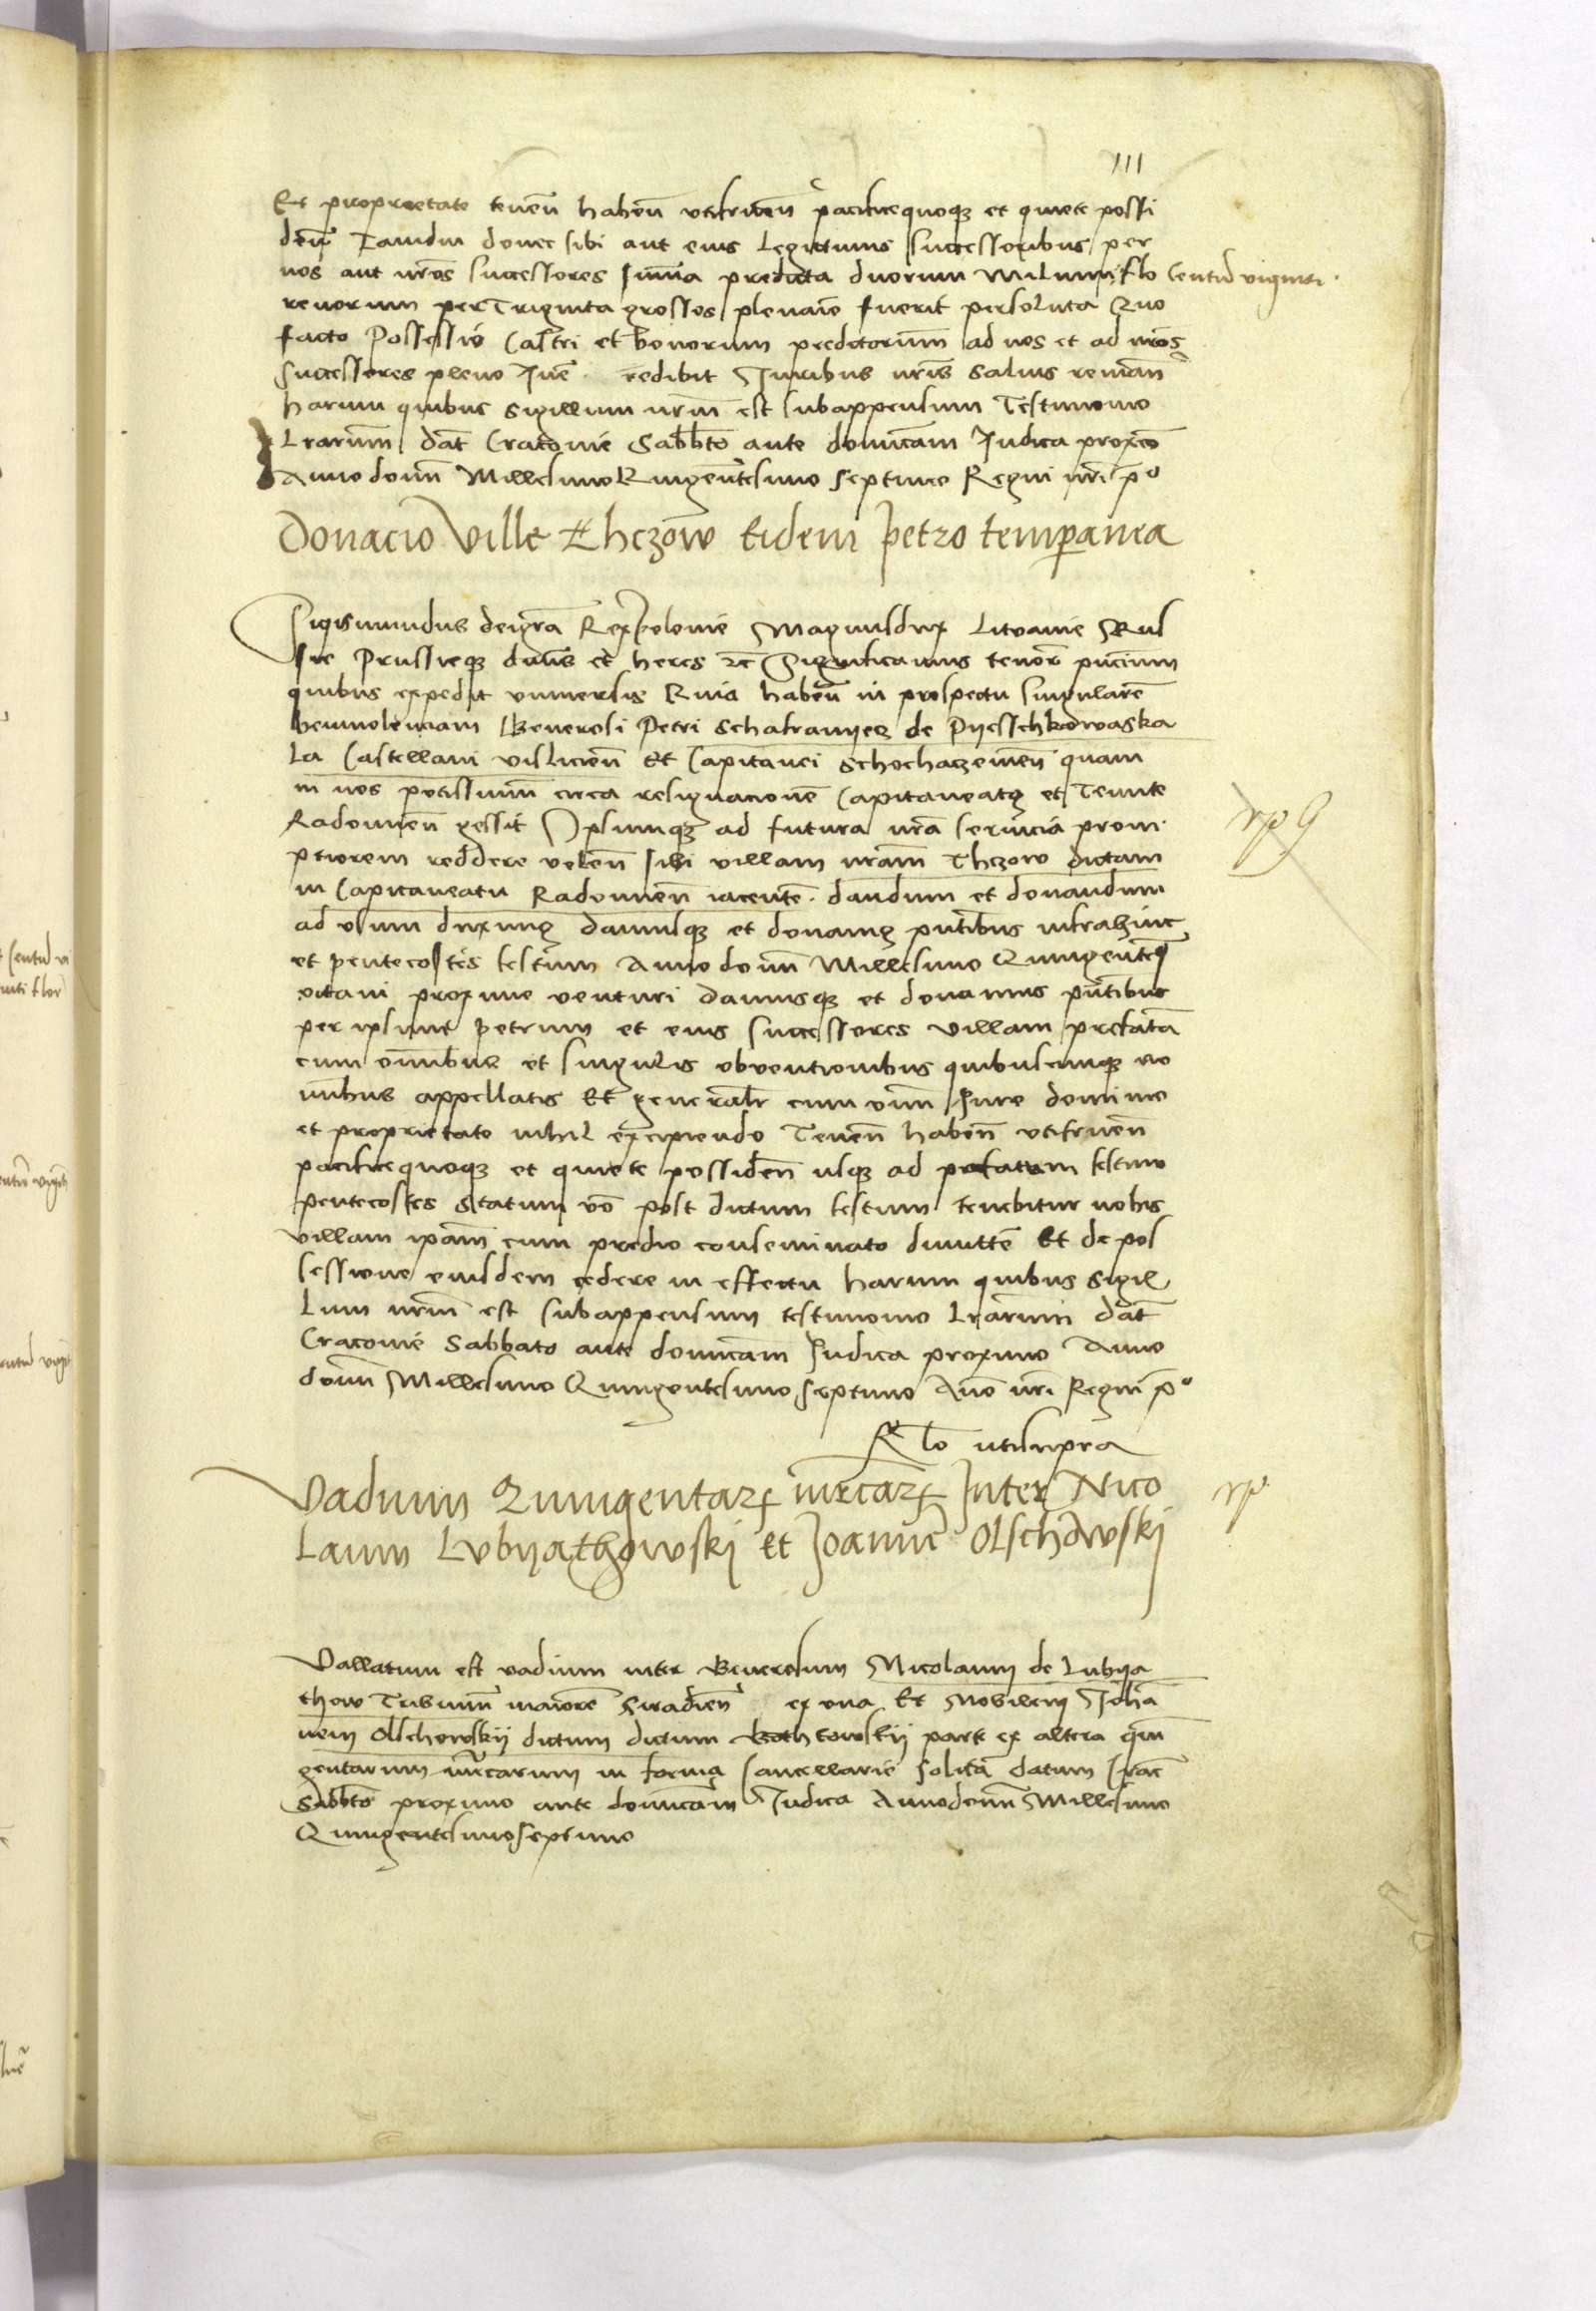 111
Et proprietate tenen̄ haben̄ utifruen̄ pacificequoqz et quiete possi
den̄ Tamdiu donec sibi aut eius legittimis successoribus per
nos aut nr̄os successores sum̄a predicta duorum Milium flo Centū viginti
renorum per Triginta grossos plenarie fuerit persoluta Quo
facto Possessio Castri et bonorum predictorum ad nos et ad nr̄os
successores pleno Iure redibit Iuribus nr̄is salvis reman̄
harum quibus sigillum nr̄m est subappensum Testimonio
Lrarum dat̄ Cracovie Sabbto ante dominicam Iudica proximo
Anno domini Millesimo Quingentesimo septimo Regni nr̄i p̄o
Donacio Ville Thczow Eidem Petro temporanea
Sigismundus dei gr̄a Rex polonie Magnus dux Litvanie Rus
sie Prussieqz dn̄us et heres zc Significamus tenore pn̄cium
quibus expedit universis Quia haben̄ in prospectu singularem
benivolenciam Generosi Petri Schafranyecz de Pyesschkowaska
la Castellani vislicien̄ Et Capitanei Schochaczewien̄ quam
in nos potissimum circa resignacionē Capitaneatq et Tenute
Radomien̄ gessit Ipsumqz ad futura nr̄a servicia prom
ptiorem reddere volen̄ sibi villam nr̄am Thczow dictam
in Capitaneatu Radomien̄ iacentē dandum et donandum
ad usum duximus damusqz et donamus pn̄tibus infrahinc
et pentecostes festum Anno domini Millesimo Quingentesimo
octavi proxime venturi damusqz et donamus pn̄tibus
per ipsum petrum et eius successores villam prefatā
cum omnibus et singulis obventionibus quibuscumqz no
minibus appellatis Et generalr cum omni Iure dominio
et proprietate nihil excipiendo Tenen̄ haben̄ utifruen̄
pacificequoqz et quiete possiden̄ usqz ad prefatum festum
pentecostes Statim vo post dictum festum tenebitur nobis
villam ipsam cum predio conseminato dimitte Et de pos
sessione eiusdem cedere in effectu harum quibus sigil
lum nr̄m est subappensum testimonio Lrarum dat̄
Cracovie Sabbato ante dominicam Iudica proximo Anno
domini Millesimo Quingentesimo septimo Anno nr̄i Regni p̄o
Rlo utsupra
Vadium Quingentarum mrcarum Inter Nico
laum Lubyathowski et Joannē Olschowski
Vallatum est vadium inter Generosum Nicolaum de Lubya
thow Tribunum maiorē Siradien̄ ex una Et Nobilem Johā
nem Olschowskij dictum dictum Bothkowskij parte ex altera quin
gentarum mrcarum in forma Cancellarie solita datum Crac
Sabbto proximo ante dominicam Iudica Anno domini Millesimo
Quingentesimo septimo